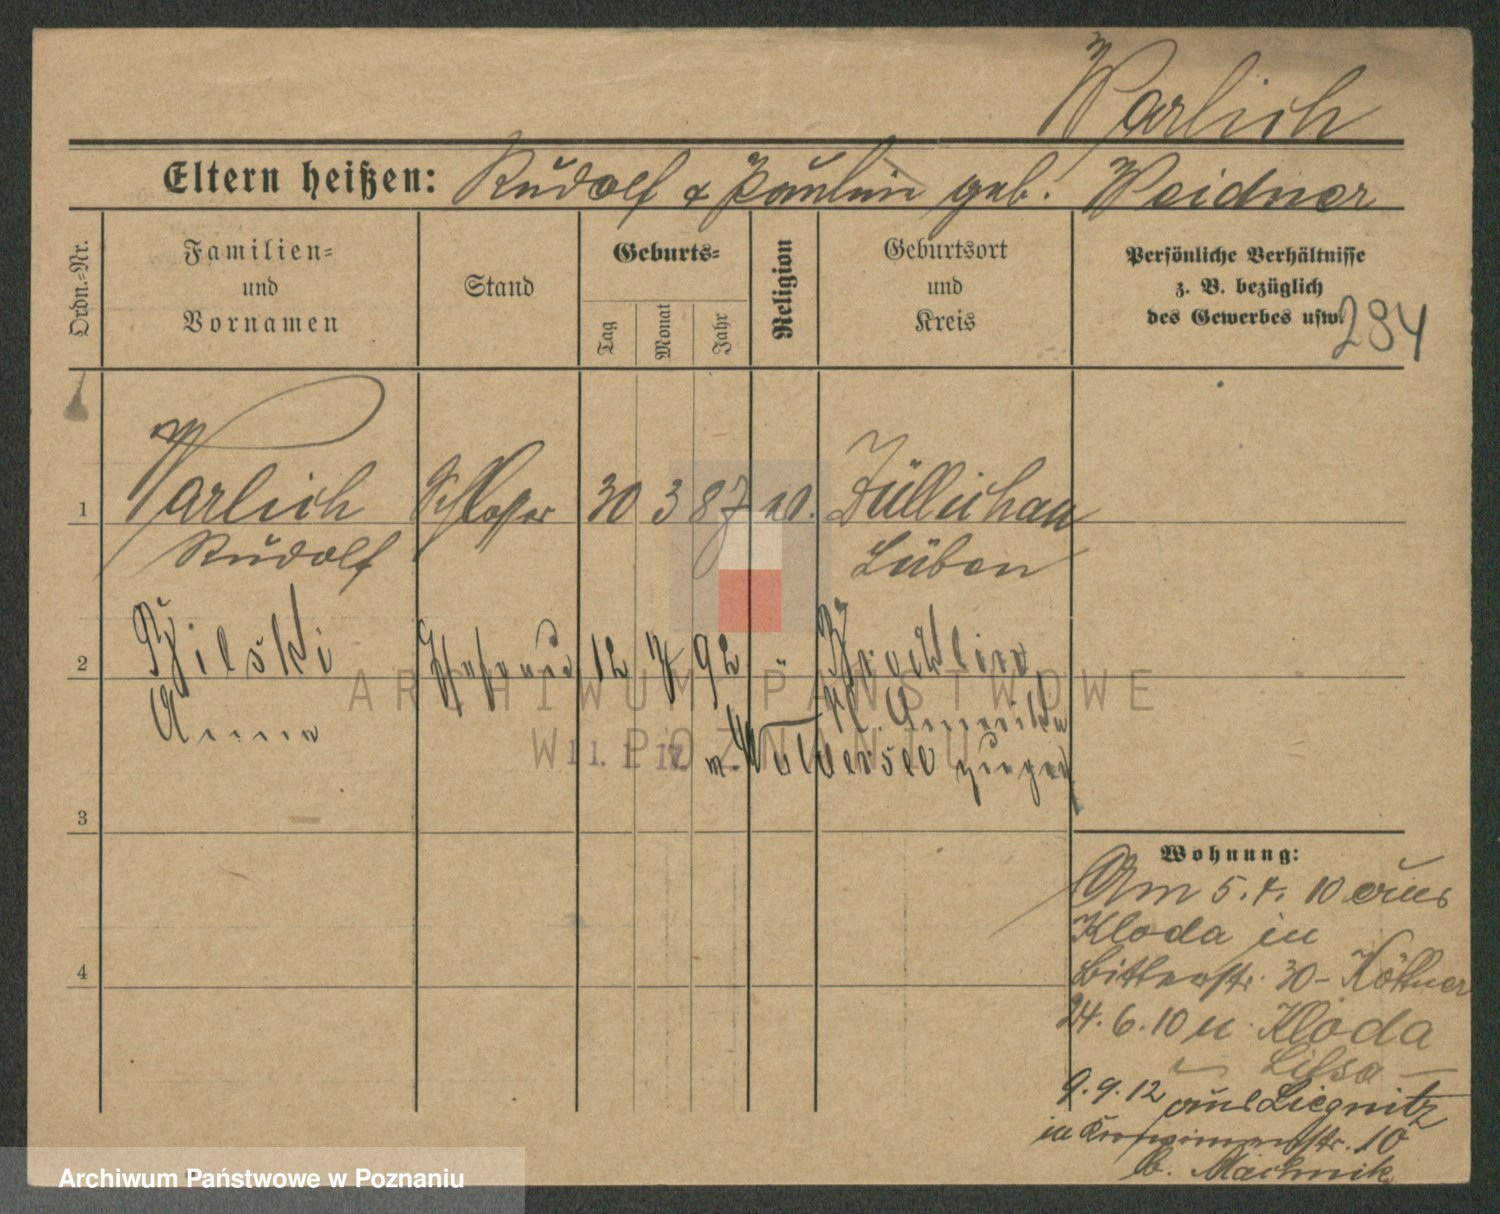 Warlich
Eltern heißen: Rudolf & Pauline geb. Weidner
Ordn.-Nr.
Familien-
und
Vornamen
Stand
Geburts-
Tag
Monat
Jahr
Religion
Geburtsort
und
Kreis
Persönliche Verhältnisse
z. B. bezüglich
des Gewerbes usw.
284
1 Warlich Schlosser 30 3 87 ev. Züllichau
Rudolf Lüben
2 Ehefrau 12 7 92 "
Anna
11. 1. 17.
3
Wohnung:
Am 5. 4. 10 aus
Kloda in
30 - Köttner
4
24. 6. 10 n. Kloda
Lissa
9. 9. 12 aus Liegnitz
in Kronprinzenstr. 10
b. Machnik
ARCHIWUM PAŃSTWOWE
W POZNANIU
Archiwum Państwowe w Poznaniu